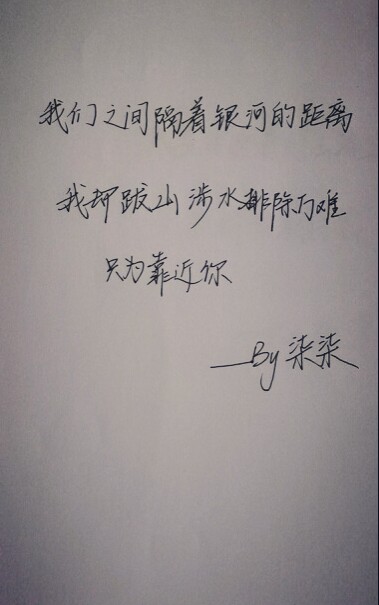 我们之间隔着银河的距离
我却跋山涉水排除万难
只为靠近你
——By 柒柒